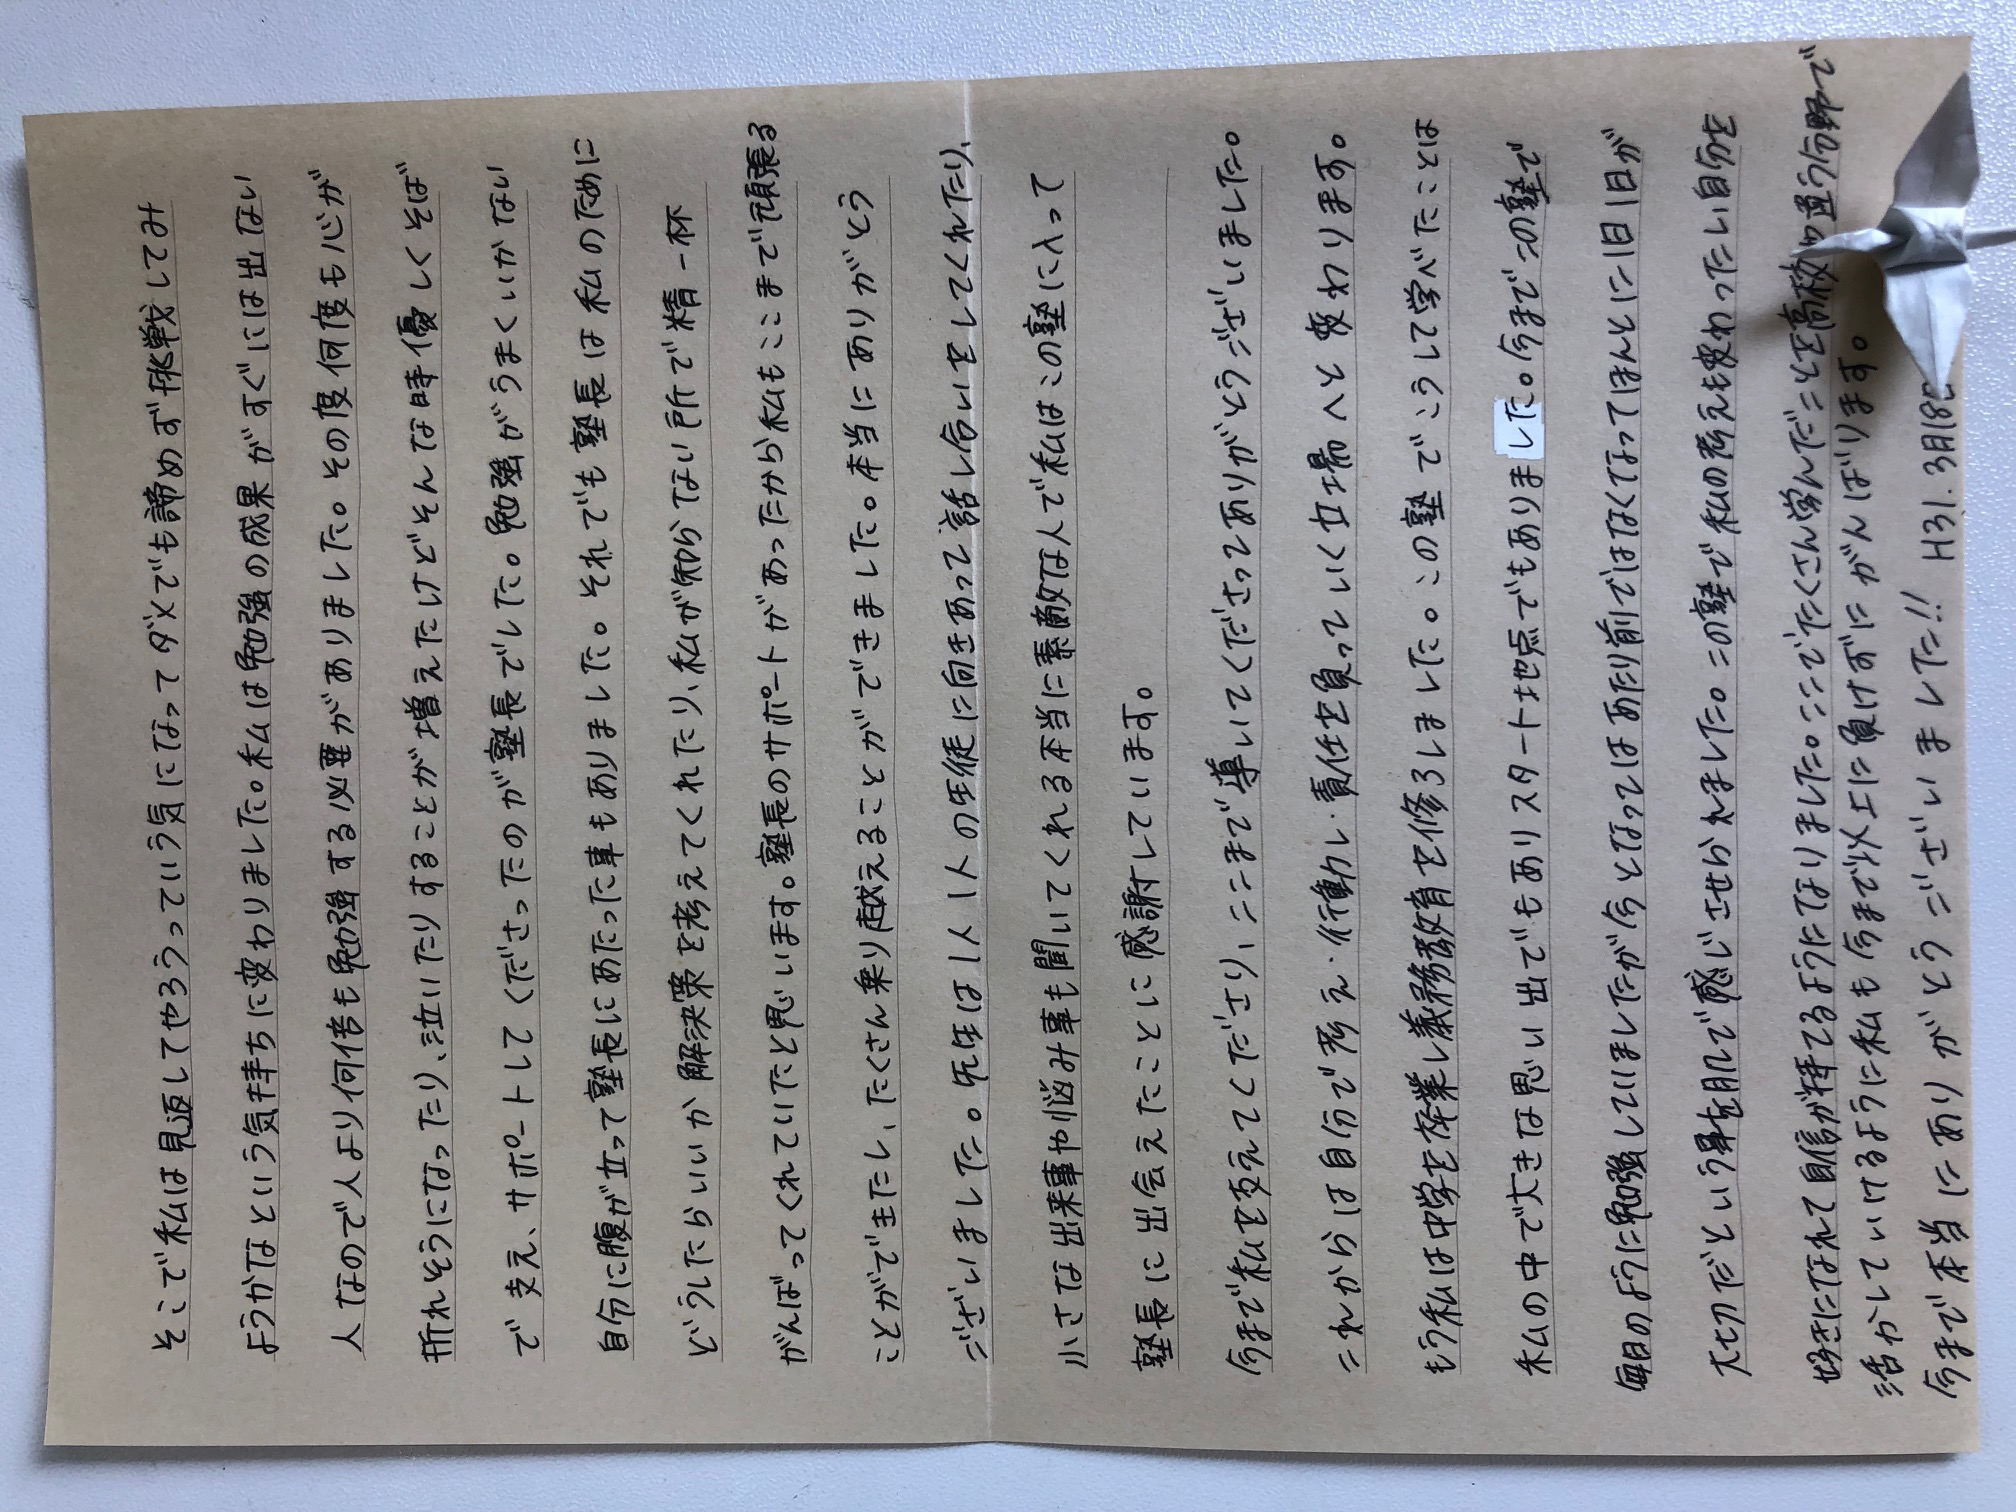 そこで私は見返してやろうっていう気になってダメでも諦めず挑戦してみ
ようかなという気持ちに変わりました。私は勉強の成果がすぐには出ない
人なので人より何倍も勉強する必要がありました。その度何度も心が
折れそうになったり、泣いたりすることが増えたけどそんな時優しくそば
で支え、サポートしてくださったのが塾長でした。勉強がうまくいかない
自分に腹が立って塾長にあたった事もありました。それでも塾長は私のために
どうしたらいいか解決策を考えてくれたり、私が知らない所で精一杯
がんばってくれていたと思います。塾長のサポートがあったから私もここまで頑張る
ことができたし、たくさん乗り越えることができました。本当にありがとう
ございました。先生は1人1人の生徒に向きあって話し合いをしてくれたり、
小さな出来事や悩み事も聞いてくれる本当に素敵な人で私はこの塾に入って
塾長に出会えたことに感謝しています。
今まで私を支えてくださり、ここまで導いてくださってありがとうございました。
これからは自分で考え・行動し・責任を負っていく立場へと変わります。
もう私は中学を卒業し義務教育を修了しました。この塾でこうして学べたことは
私の中で大きな思い出でもありスタート地点でもありました。今までこの塾で
毎日のように勉強していましたが今となってはあたり前ではなくなってほんとに1日1日が
大切だという事を肌で感じさせられました。この塾で私の考えも変わったし、自分を
好きになれて自信が持てるようになりました。ここでたくさん学んだことを高校や違う分野で
活かしていけるように私も今まで以上に負けずにがんばります。
今まで本当にありがとうございました!! H31.3月18日